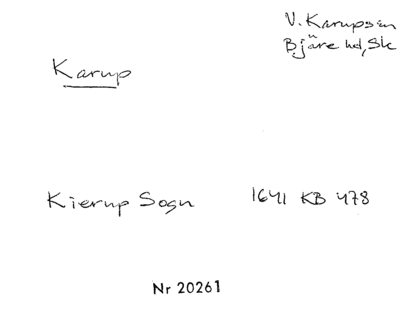 V. Karups sn
Bjäre hd, Sk
Karup
Kierup Sogn 1641 KB 478
Nr 20261